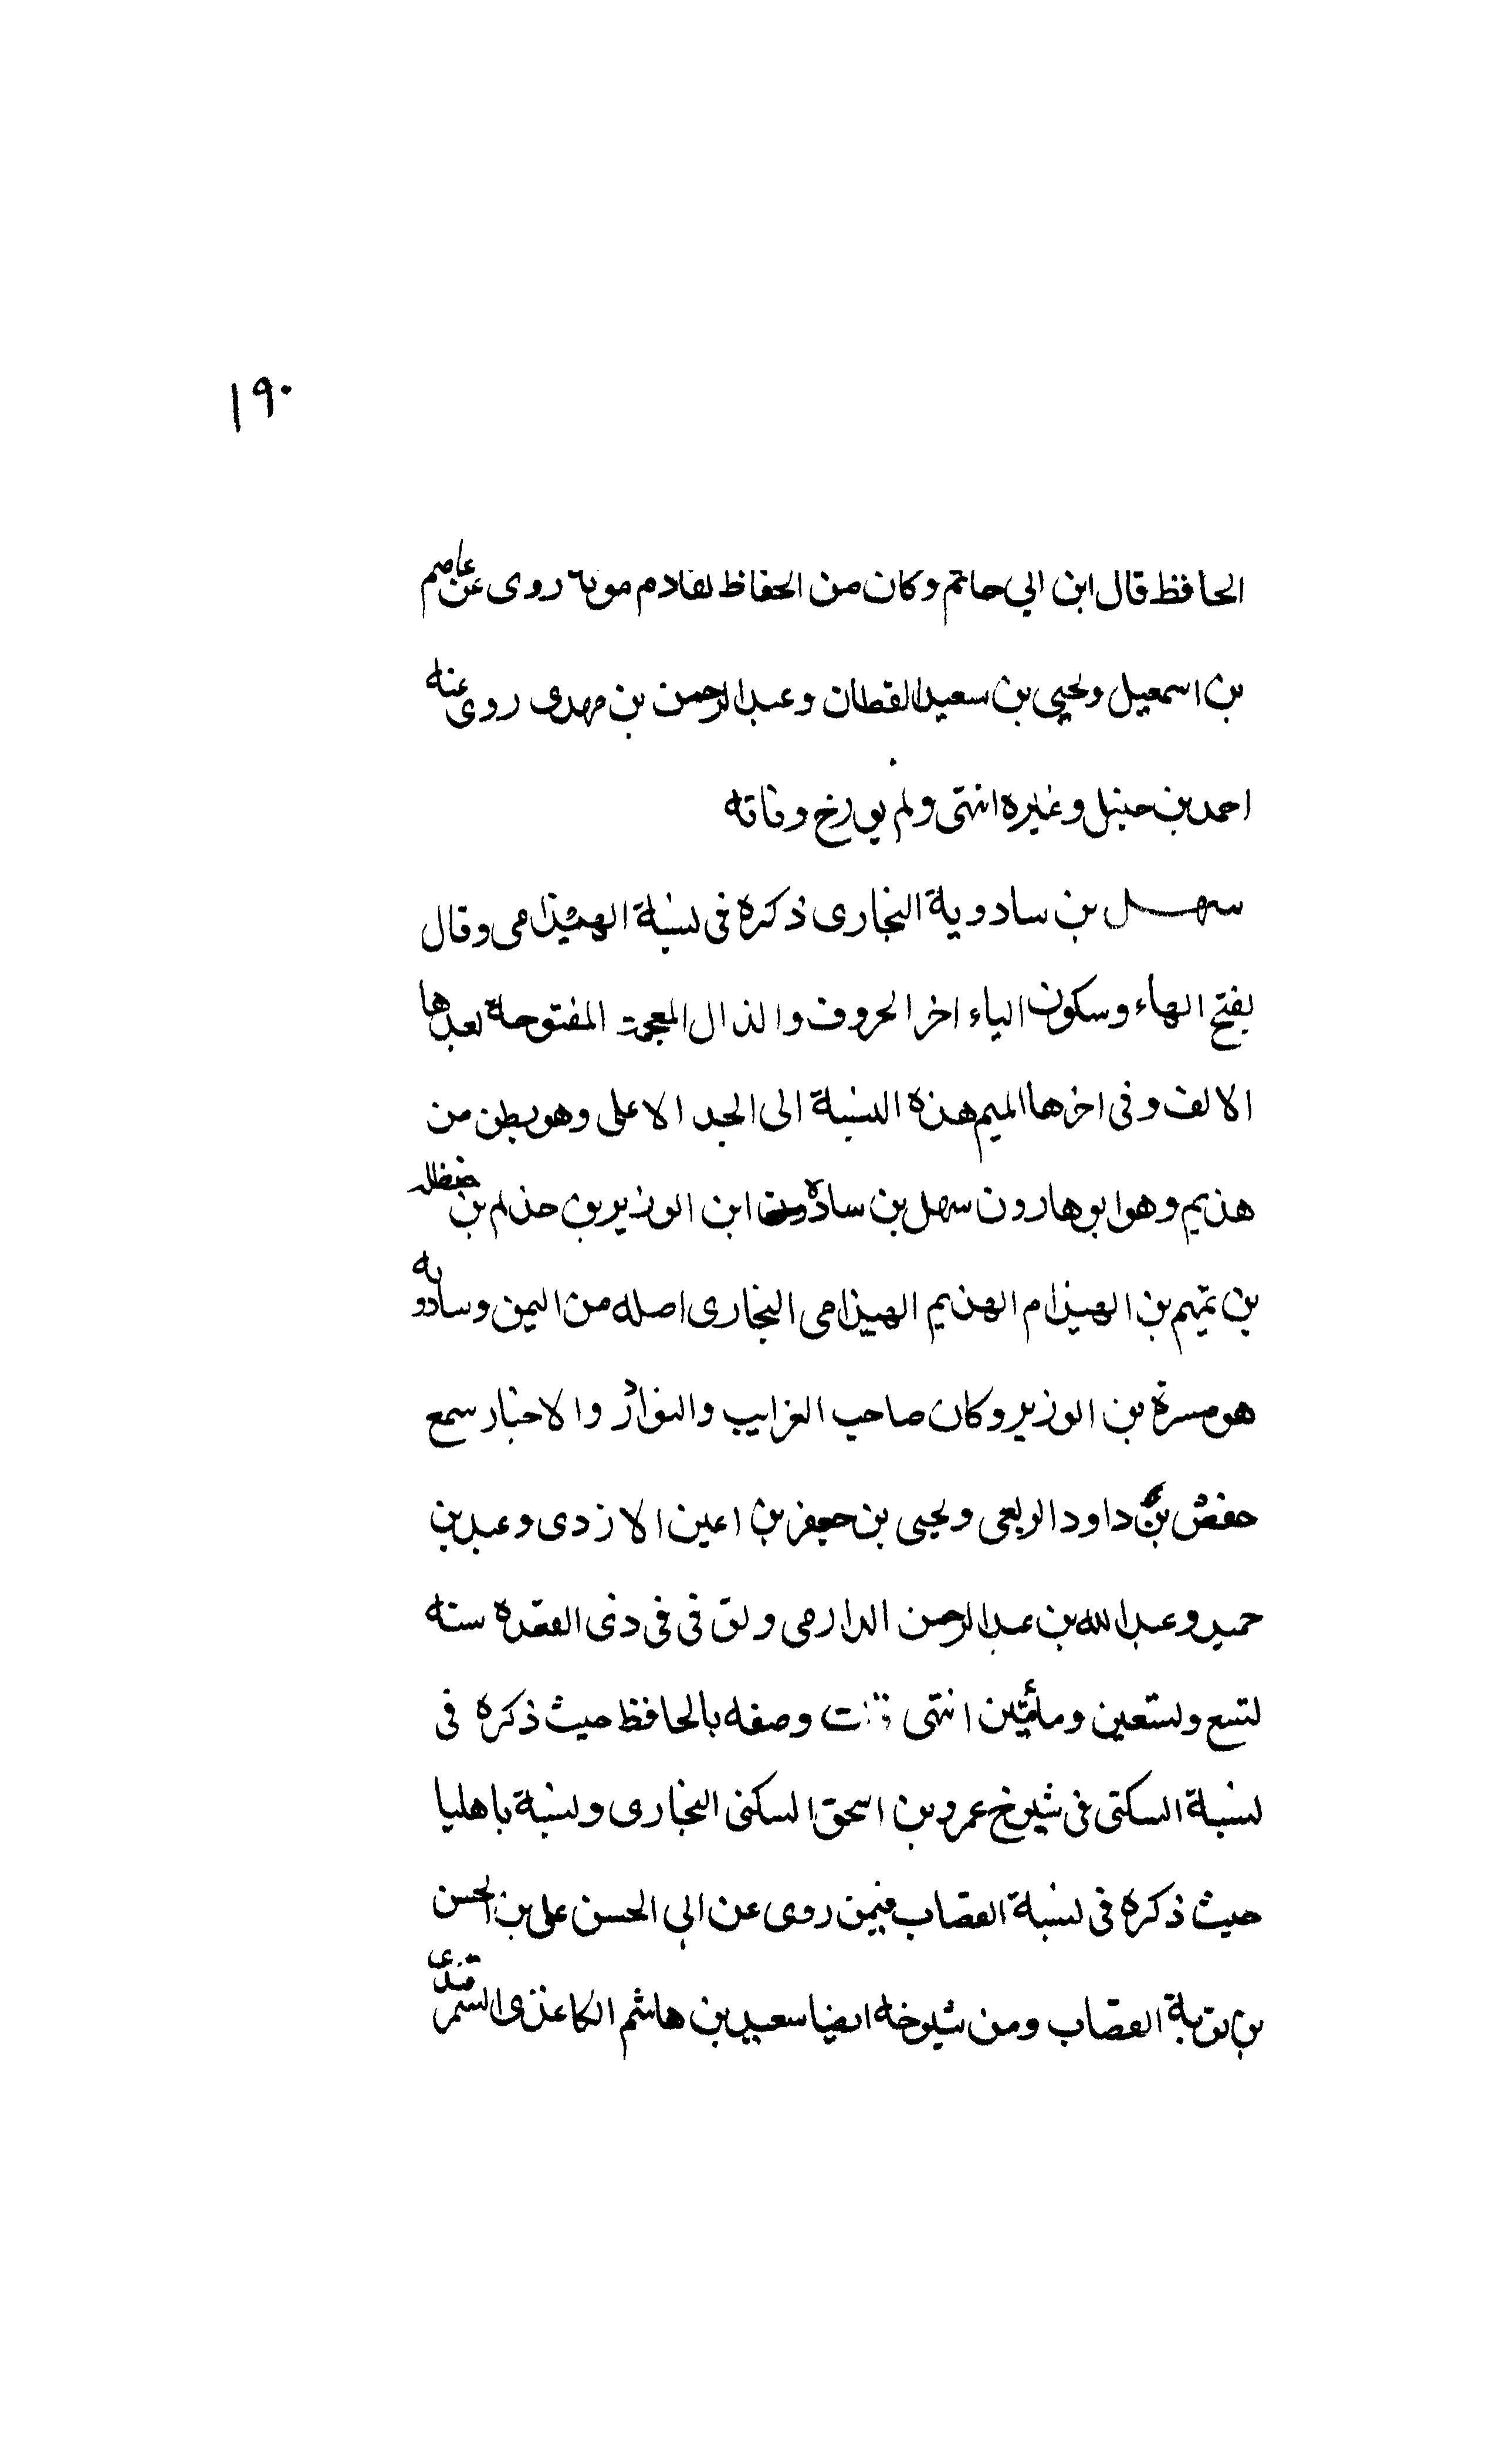 ١٩٠
الحافظ قال ابن ابي حاتم وكان من الحفاظ تقادم موته روى عن عاصم
بن اسمعيل ويحيى بن سعيد القطان وعبد الرحمن بن مهدى روى عنه
احمد بن حنبل وغيره انتهى ولم يورخ وفاته
سهل بن سادوية البخارى ذكره فى نسبة الهيذامى وقال
بفتح الهاء وسكون الياء اخر الحروف والذال المعجمة المفتوحة بعدها
الالف وفى اخرها الميم هذه النسبة الى الجد الاعلى وهو بطن من
هذيم وهو ابو هارون سهل بن سادويه ابن الوزير بن حذلم بن حنظله
بن تميم بن الهيذام الهذيم الهيذامى البخارى اصله من اليمن وسادويه
هو مسرة بن الوزير وكان صاحب الغرايب والنوادر والاخبار سمع
حفص بن داود الربعى ويحيى بن جعفر بن اعين الازدى وعبد بن
حميد وعبد الله بن عبد الرحمن الدارمى وتوفى فى ذى القعده سنه
تسع وتسعين ومأتين انتهى قلت وصفه بالحافظ حيث ذكره فى
نسبة السكنى فى شيوخ عمرو بن اسحق السكنى البخارى ونسبة باهليا
حيث ذكره فى نسبة القصاب فيمن روى عن ابى الحسن على بن الحسن
بن توبة القصاب ومن شيوخه ايضا سعيد بن هاشم الكاغذى السمرقندى